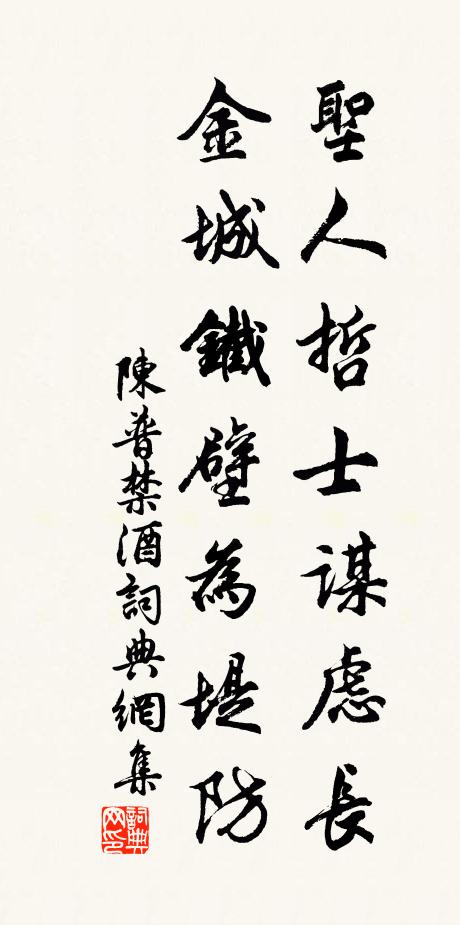 聖人哲士謀慮長
金城鐵壁為堤防
陳普禁酒詞典網集
詞典网印